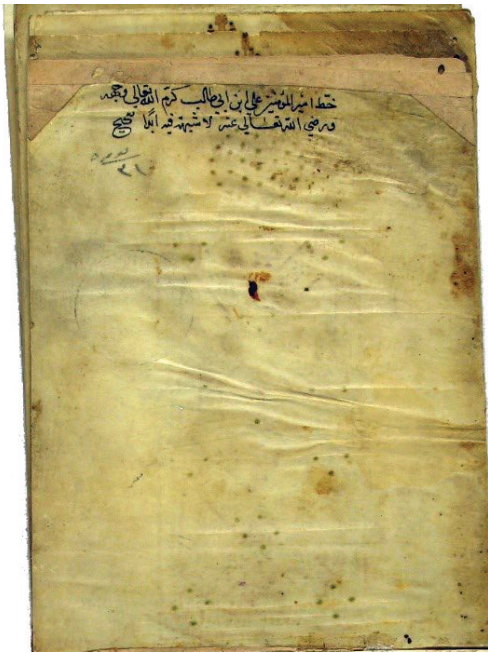 خط امير المؤمنين على ابن ابى طالب كرم الله تعالى وجهه
ورضي الله تعالى عنه لا شبهة فيه ابدا صحيح
٣١